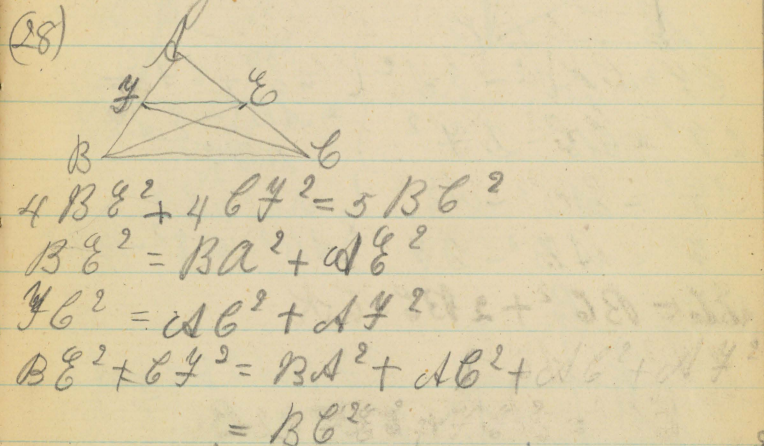 (28)
A
F E
B C
4 BE² + 4 CF² = 5 BC²
BE² = BA² + AE²
FC² = AC² + AF²
BE² + CF² = BA² + AC² + AE² + AF²
= BC²